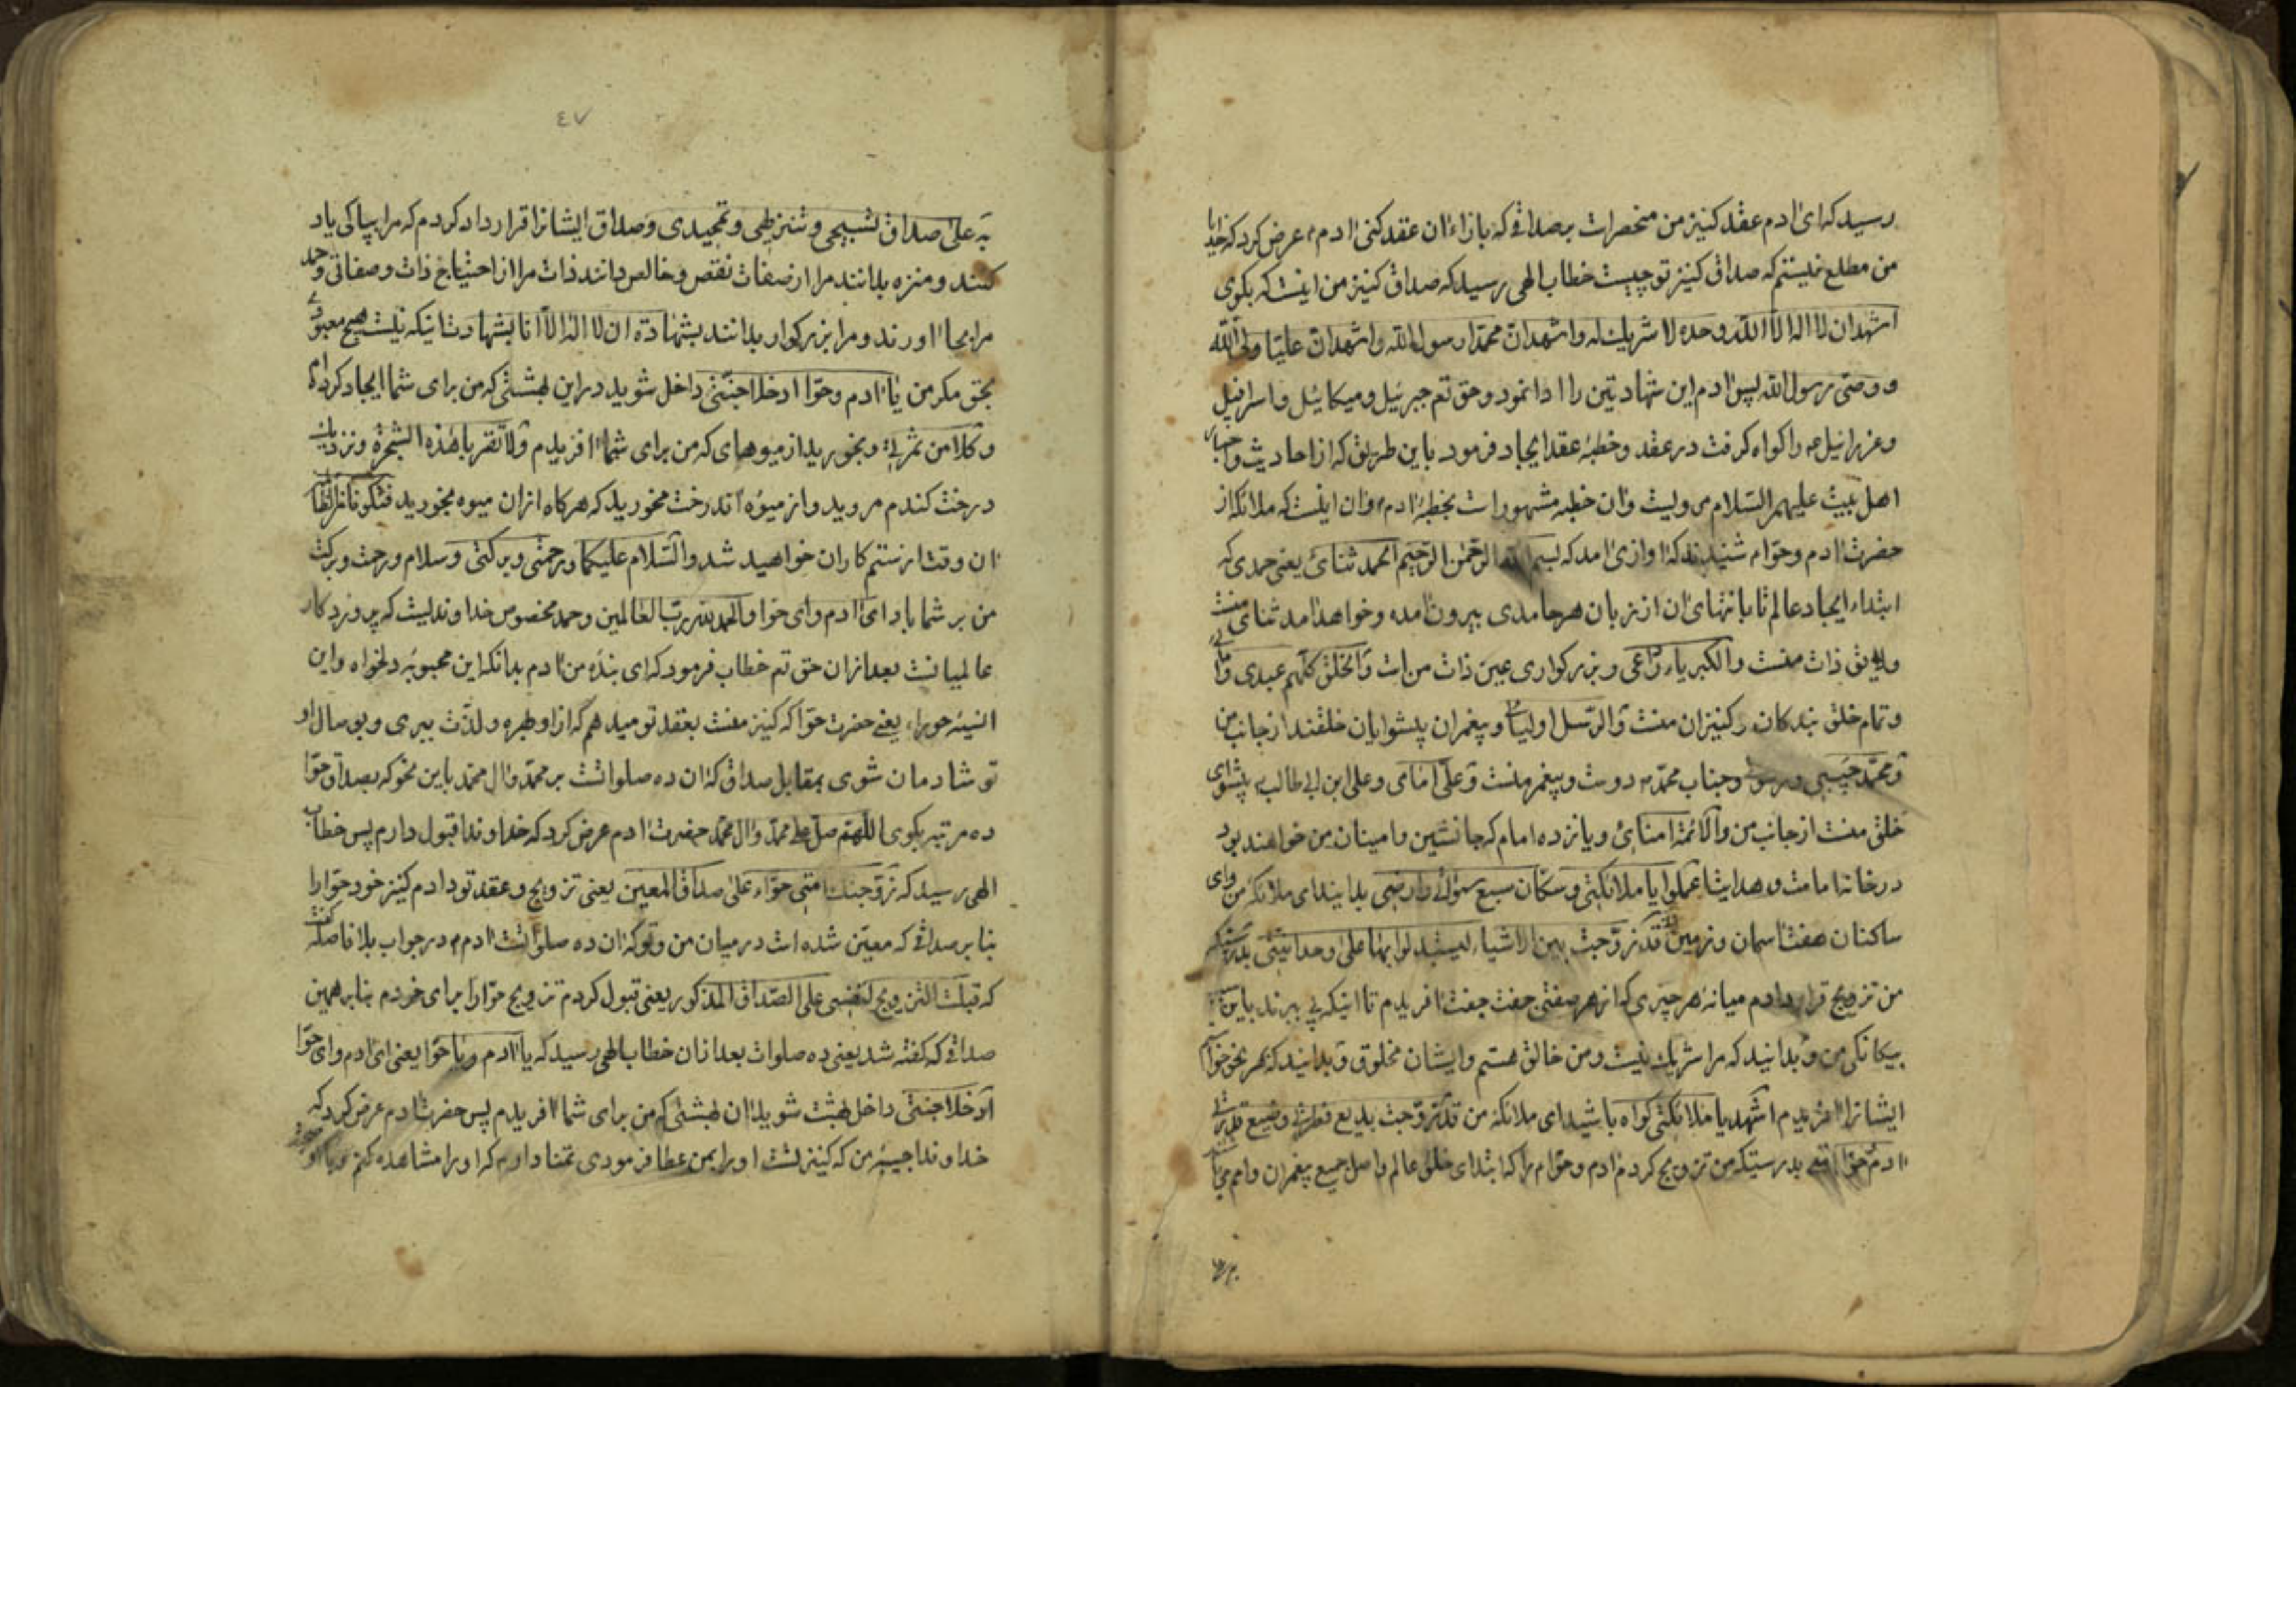 رسید که ای آدم عقد کنیز من منحصرات بر صداقی که بازاء آن عقد کنی آدم عرض کرد که خدایا
من مطلع نیستم که صداق کنیز تو چیست خطاب الهی رسید که صداق کنیز من اینست که بگوی
اشهد ان لا اله الا الله وحده لا شریک له و اشهد ان محمدا رسول الله و اشهد ان علیا ولی الله
و وصی رسول الله پس آدم این شهادتین را ادا نمود و حق تعم جبرئیل و میکائیل و اسرافیل
و عزرائیل را کواه کرفت در عقد و خطبۀ عقد ایجاد فرمود باین طریق که از احادیث و اخبار
اهل بیت علیهم السلام مرویست و آن خطبه مشهور است بخطبۀ آدم و آن اینست که ملائکه از
حضرت آدم و حوا م شنیدند که آوازی آمد که بسم الله الرحمن الرحیم الحمد ثنائی یعنی حمدی که
ابتداء ایجاد عالم تا بانتهای آن از زبان هر حامدی بیرون آمده و خواهد آمد ثنای منست
و لایق ذات منست و الکبریاء ردائی و بزرکواری عین ذات من است و الخلق کلهم عبیدی و امائی
و تمام خلق بندکان و کنیزان منست و الرسل اولیائی و پیغمران پیشوایان خلقند از جانب من
و محمد حبیبی و رسولی و جناب محمد دوست و پیغمر منست و علی امامی و علی ابن ابی طالب پیشوای
خلق منست از جانب من و الائمة امنائی و یازده امام که جانشین و امینان من خواهند بود
در خانه امامت و هدایت اعملوا یا ملائکتی و سکان سبع سمواتی و ارضی بدانید ای ملائکۀ من و ای
ساکنان هفت آسمان و زمین قد زوجت بین الاشیاء لیستدلوا بها علی وحدانیتی بدرستیکه
من تزویج قرار دادم میانۀ هر چیزی که از هر صفتی جفت جفت آفریدم تا اینکه پی ببرند باین
بیکانکی من و بدانید که مرا شریک نیست و من خالق هستم و ایشان مخلوق و بدانید که هر نحو خواستم
ایشانرا آفریدم اشهد یا ملائکتی کواه باشید ای ملائکه من قد زوجت بدیع فطرتی و صنیع قدرتی
آدم حوا امتی بدرستیکه من تزویج کردم آدم و حوام را که ابتدای خلق عالم و اصل جمیع پیغمران و امم
یه علی صداق تسبیحی و تنزیهی و تمجیدی و صداق ایشانرا قرار داد کردم که مرا بپاکی یاد
کنند و منزه بدانند مرا از صفات نقص و خالص دانند ذات مرا از احتیاج ذات و صفاتی و حمد
مرا بجا آورند و مرا بزرکوار بدانند بشهادة ان لا اله الا انا بشهادت اینکه نیست هیچ معبودی
بحق مکر من یا آدم و حوا ادخلا جنتی داخل شوید در این بهشتی که من برای شما ایجاد کرده ام
و کلا من ثمرتی و بخورید از میوهای که من برای شما آفریدم و لا تقربا هذه الشجرة و نزدیک
درخت کندم مروید و از میوۀ اندرخت مخورید که هرکاه از آن میوه بخورید فتکونا من الظالمین
آن وقت از ستم کاران خواهید شد و السلام علیکما و رحمتی و برکتی و سلام و رحمت و برکت
من بر شما باد ای آدم و ای حوا و الحمد لله رب العالمین و حمد مخصوص خداوندیست که پروردکار
عالمیانست بعد از آن حق تعم خطاب فرمود که ای بندۀ من آدم بدانکه این محبوبۀ دلخواه و این
انسیۀ حوراء یعنی حضرت حوا که کنیز منست بعقد تو میدهم که از او بهره و لذت ببری و بوصال او
تو شادمان شوی بمقابل صداق که آن ده صلواتست بر محمد و آل محمد باین نحو که بصداق حوا
ده مرتبه بکوی اللهم صل علی محمد و آل محمد حضرت آدم عرض کرد که خداوندا قبول دارم پس خطاب
الهی رسید که زوجتک امتی حواء علی صداق المعین یعنی تزویج و عقد تو دادم کنیز خود حوا را
بنا بر صداقی که معین شده است در میان من و تو که آن ده صلواتست آدم در جواب بلا فاصله گفت
که قبلت التزویج لنفسی علی الصداق المذکور یعنی قبول کردم تزویج حوا را برای خودم بنا بر همین
صداقی که کفته شد یعنی ده صلوات بعد از آن خطاب الهی رسید که یا آدم و یا حوا یعنی ای آدم و ای حوا
ادخلا جنتی داخل بهشت شوید آن بهشتی که من برای شما آفریدم پس حضرت آدم عرض کرد که
خداوندا حبیبۀ من که کنیز تست او را بمن عطا فرمودی تمنا دارم که او را مشاهده کنم
٤٧